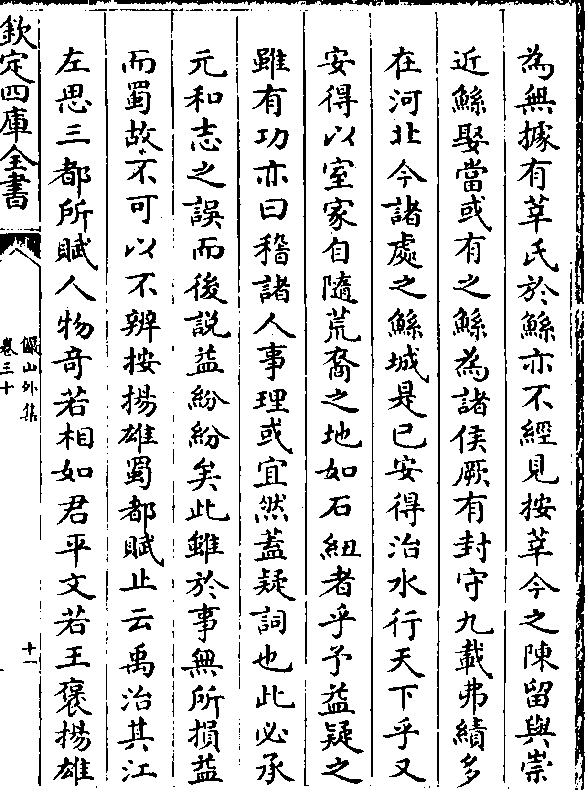 為無據有莘氏於鯀亦不經見按莘今之陳留與崇
近鯀娶當或有之鯀為諸侯厥有封守九載弗績多
在河北今諸處之鯀城是已安得治水行天下乎又
安得以室家自隨荒裔之地如石紐者乎予益疑之
雖有功亦曰稽諸人事理或宜然蓋疑詞也此必承
元和志之誤而後説益紛紛矣此雖於事無所損益
而蜀故不可以不辨按揚雄蜀都賦止云禹治其江
左思三都所賦人物奇若相如君平文若王褒揚雄
欽定四庫全書
儼山外集
卷三十
十一